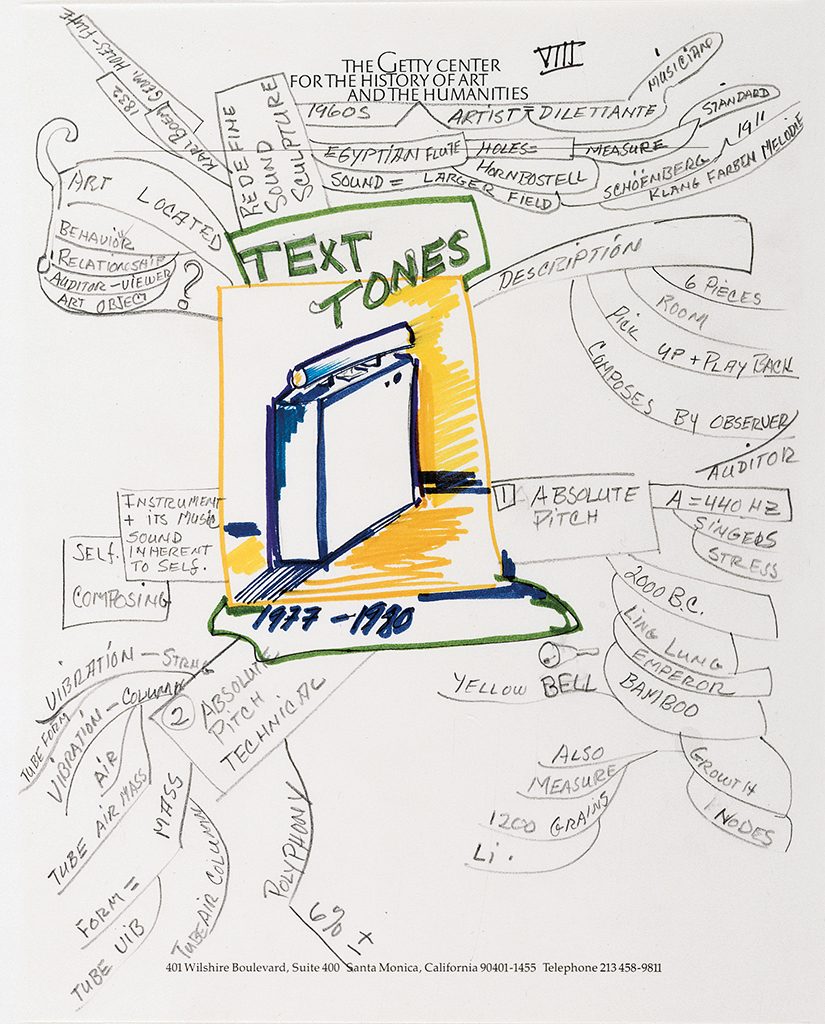 THE GETTY CENTER
FOR THE HISTORY OF ART
AND THE HUMANITIES
VIII
KARL DOEN
1832
GEMI. HOLES-FLUTE
REDEFINE
SOUND
SCULPTURE
1960S
ARTIST = DILETTANTE
MUSICIAN
EGYPTIAN FLUTE
HOLES=
MEASURE
STANDARD
HORNBOSTELL
SOUND = LARGER FIELD
SCHÖENBERG 1911
KLANG FARBEN MELODIE
ART LOCATED
BEHAVIOR
RELATIONSHIP
AUDITOR-VIEWER
ART OBJECT
?
TEXT
TONES
DESCRIPTION
6 PIECES
ROOM
PICK UP + PLAY BACK
COMPOSES BY OBSERVER
AUDITOR
INSTRUMENT
+ ITS MUSIC
SOUND
INHERENT
TO SELF.
SELF.
COMPOSING
1 ABSOLUTE
PITCH
A = 440 HZ
SINGERS
STRESS
2000 B.C.
LING LUNG
EMPEROR
BAMBOO
YELLOW BELL
GROWTH
NODES
ALSO
MEASURE
1200 GRAINS
Li.
1977 - 1980
2 ABSOLUTE
PITCH
TECHNICAL
VIBRATION - STRNG
TUBE FORM
VIBRATION - COLUMN
AIR
TUBE AIR MASS
MASS
FORM =
TUBE VIB
TUBE AIR COLUMN
POLYPHONY
6% ±
401 Wilshire Boulevard, Suite 400 Santa Monica, California 90401-1455 Telephone 213 458-9811